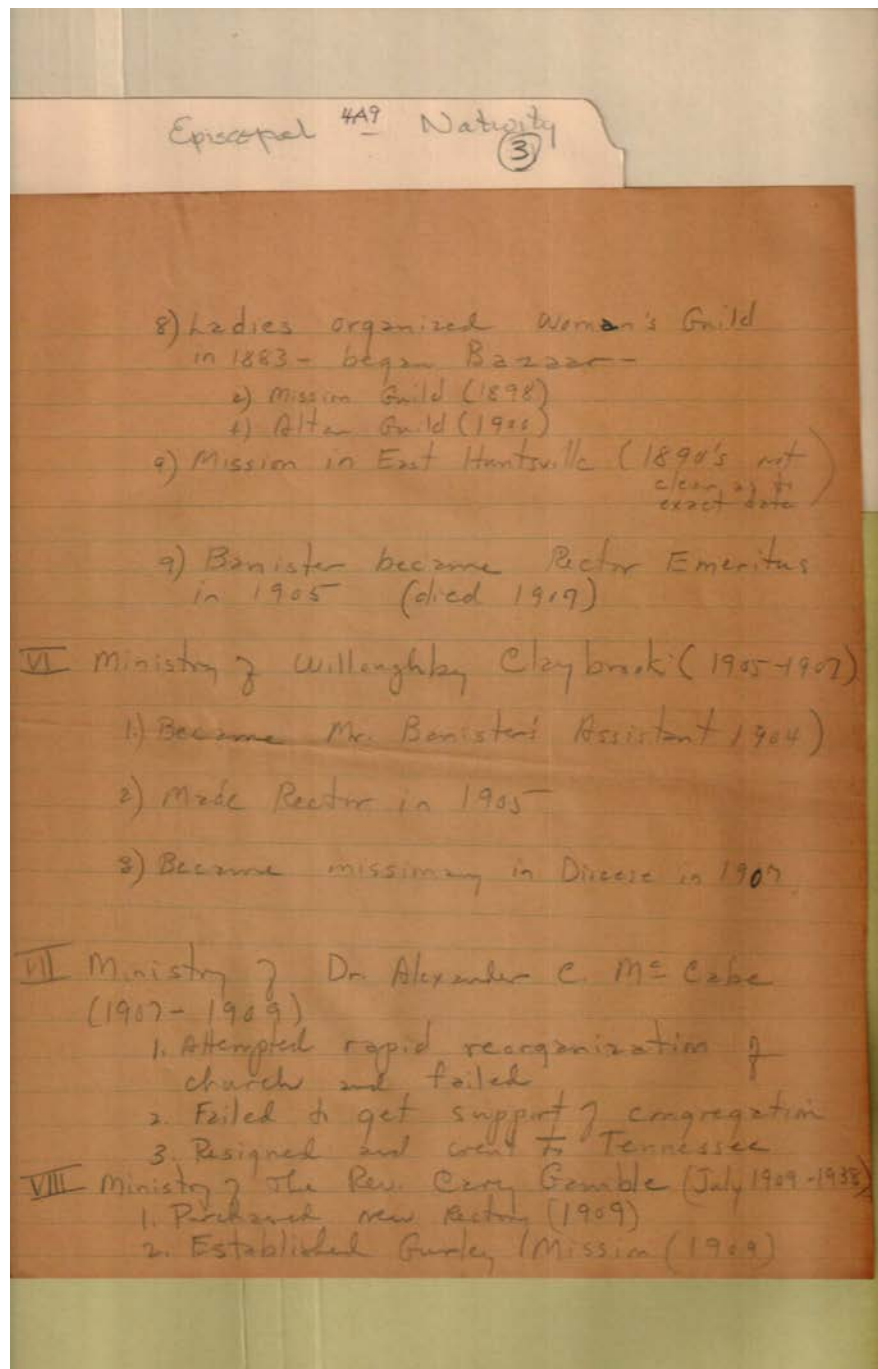 Episcopal 4A9 Nativity
3
8) Ladies organized Woman's Guild
in 1883 - began Bazaar -
a) Mission Guild (1898)
b) Altar Guild (1900)
9) Mission in East Huntsville (1890's not
clear as to
exact date)
9) Banister became Rector Emeritus
in 1905 (died 1907)
VI Ministry of Willoughby Claybrook (1905-1907)
1.) Became Mr. Banister's Assistant 1904)
2) Made Rector in 1905
3) Became missionary in Diocese in 1907.
VII Ministry of Dr. Alexander C. McCabe
(1907-1909)
1. Attempted rapid reorganization of
church and failed
2. Failed to get support of congregation
3. Resigned and went to Tennessee
VIII Ministry of The Rev. Cary Gamble (July 1909-1938)
1. Purchased new Rectory (1909)
2. Established Gurley Mission (1909)